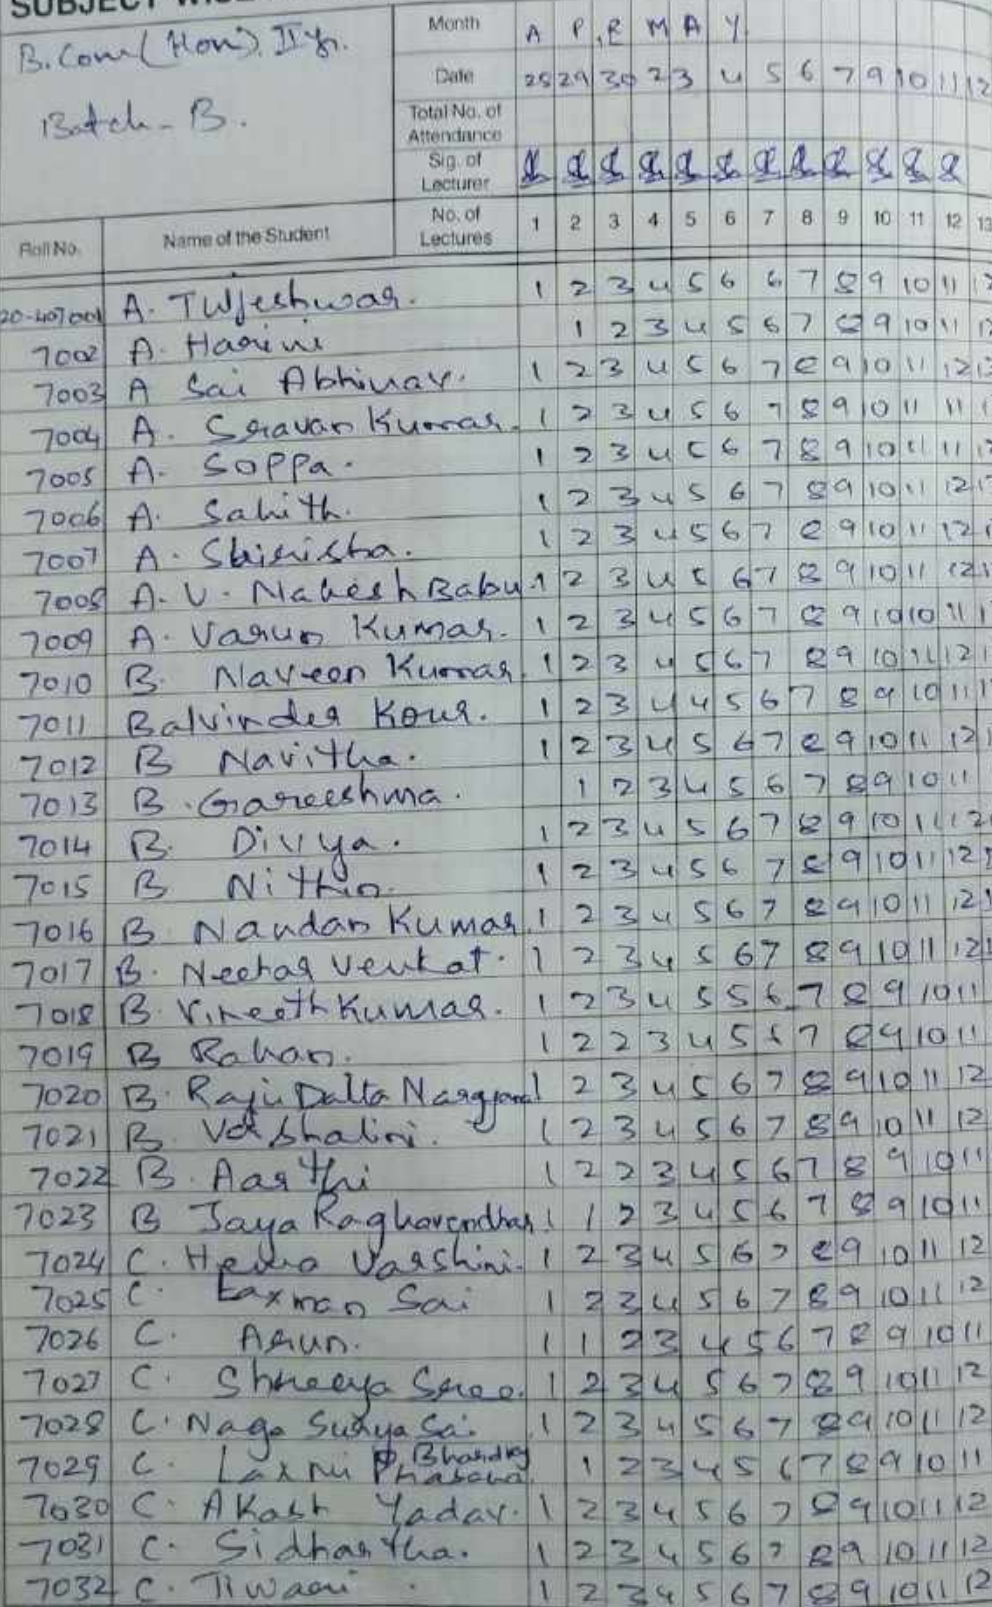 B.Com(Hon). II yr.
Batch - B.
Month A P R M A Y
Date 25 29 30 2 3 4 5 6 7 9 10 11 12
Total No. of Attendance
Sig. of Lecturer
No. of Lectures 1 2 3 4 5 6 7 8 9 10 11 12 13
Roll No. Name of the Student
20-407001 A. Tuljeshwar. 1 2 3 4 5 6 6 7 8 9 10 11
7002 A. Harini 1 2 3 4 5 6 7 8 9 10 11
7003 A Sai Abhinav. 1 2 3 4 5 6 7 8 9 10 11 12
7004 A. Sravan Kumar. 1 2 3 4 5 6 7 8 9 10 11 11
7005 A. Soppa. 1 2 3 4 5 6 7 8 9 10 11 11
7006 A. Sahith. 1 2 3 4 5 6 7 8 9 10 11 12
7007 A. Shirisha. 1 2 3 4 5 6 7 8 9 10 11 12
7008 A. V. Mahesh Babu 1 2 3 4 5 6 7 8 9 10 11 12
7009 A. Varun Kumar. 1 2 3 4 5 6 7 8 9 10 10 11
7010 B. Naveen Kumar 1 2 3 4 5 6 7 8 9 10 11 12
7011 Balvinder Kour. 1 2 3 4 4 5 6 7 8 9 10 11
7012 B Navitha. 1 2 3 4 5 6 7 8 9 10 11 12
7013 B. Gareeshma. 1 2 3 4 5 6 7 8 9 10 11
7014 B. Divya. 1 2 3 4 5 6 7 8 9 10 11 12
7015 B Nithin. 1 2 3 4 5 6 7 8 9 10 11 12
7016 B. Nandan Kumar. 1 2 3 4 5 6 7 8 9 10 11 12
7017 B. Neehar Venkat. 1 2 3 4 5 6 7 8 9 10 11 12
7018 B. Vineeth Kumar. 1 2 3 4 5 5 6 7 8 9 10 11
7019 B Rahan. 1 2 2 3 4 5 6 7 8 9 10 11
7020 B. Raju Datta 1 2 3 4 5 6 7 8 9 10 11 12
7021 B. Vaishalini. 1 2 3 4 5 6 7 8 9 10 11 12
7022 B. Aarthi 1 2 2 3 4 5 6 7 8 9 10 11
7023 B Jaya Raghavendhar. 1 1 2 3 4 5 6 7 8 9 10 11
7024 C. Hema Varshini. 1 2 3 4 5 6 7 8 9 10 11 12
7025 C. Laxman Sai 1 2 3 4 5 6 7 8 9 10 11 12
7026 C. Arun. 1 1 2 3 4 5 6 7 8 9 10 11
7027 C. Shreeya Sree. 1 2 3 4 5 6 7 8 9 10 11 12
7028 C. Naga Surya Sai 1 2 3 4 5 6 7 8 9 10 11 12
7029 C. Laxmi 1 2 3 4 5 6 7 8 9 10 11
7030 C. Akash Yadav. 1 2 3 4 5 6 7 8 9 10 11 12
7031 C. Sidhartha. 1 2 3 4 5 6 7 8 9 10 11 12
7032 C. Tiwari. 1 2 3 4 5 6 7 8 9 10 11 12